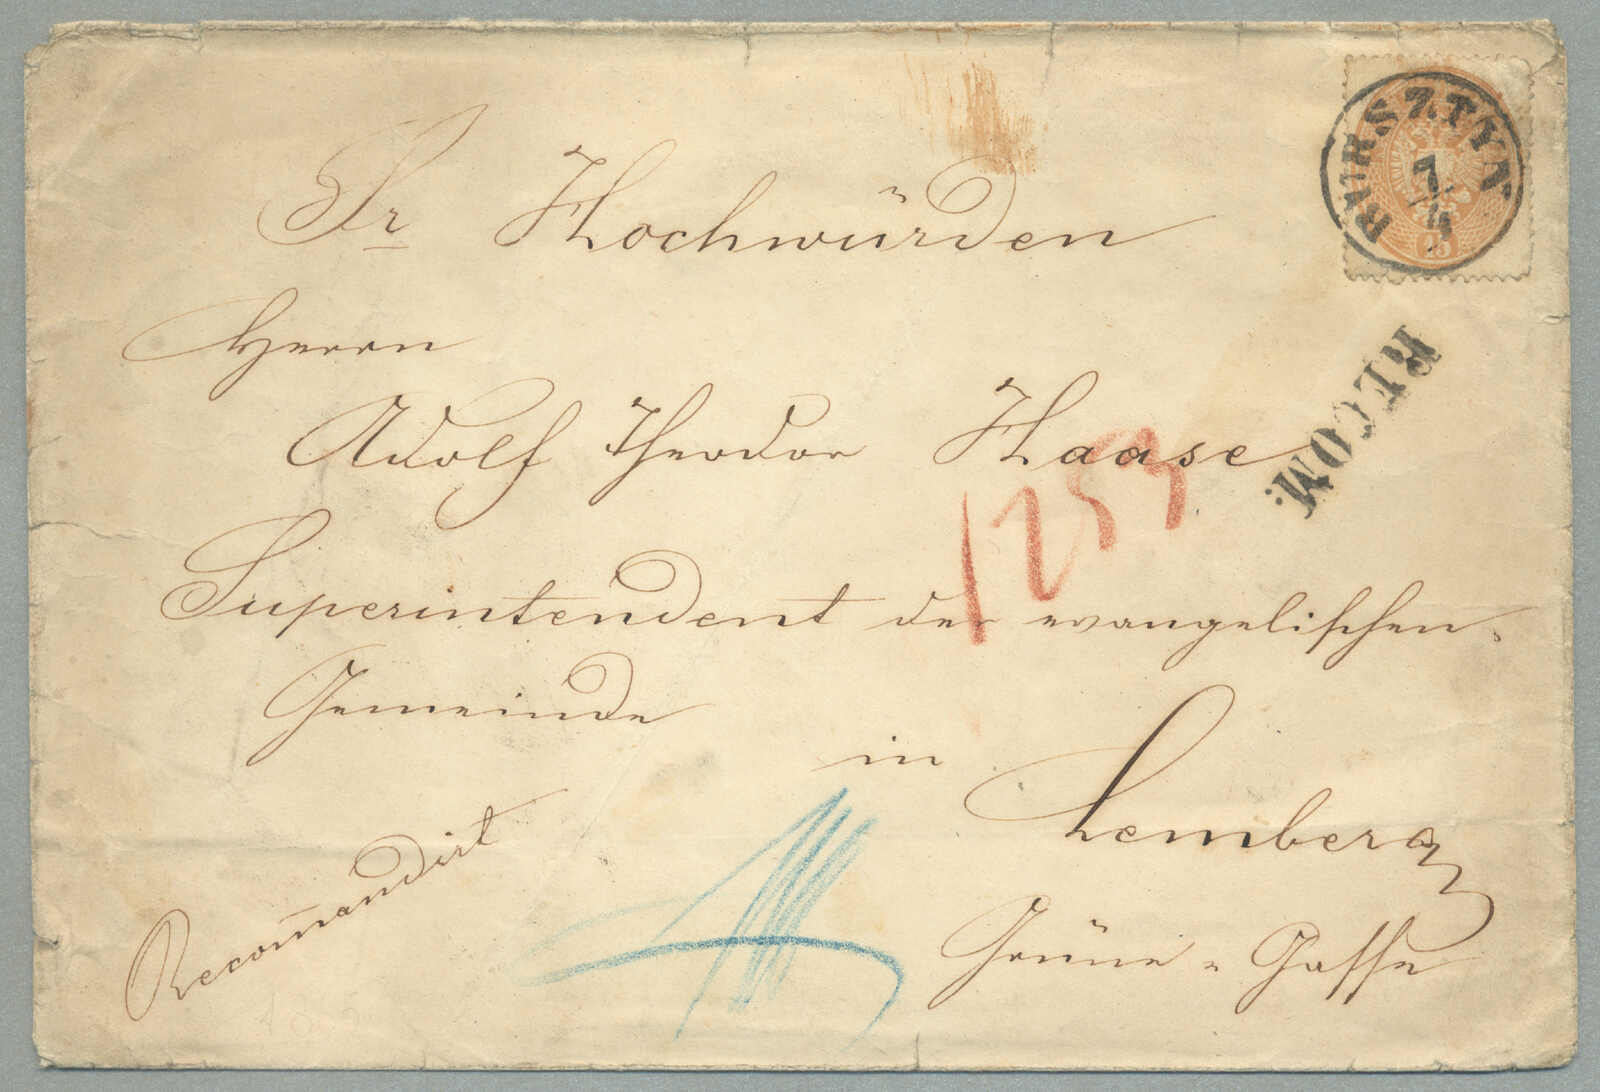 Sr Hochwürden
Herrn
Adolf Theodor Haase
Superintendent der evangelischen
Gemeinde
in
Lemberg
Grüne = Gasse
Recom̄andirt
BURSZTYN
7/4
15
RECOM: